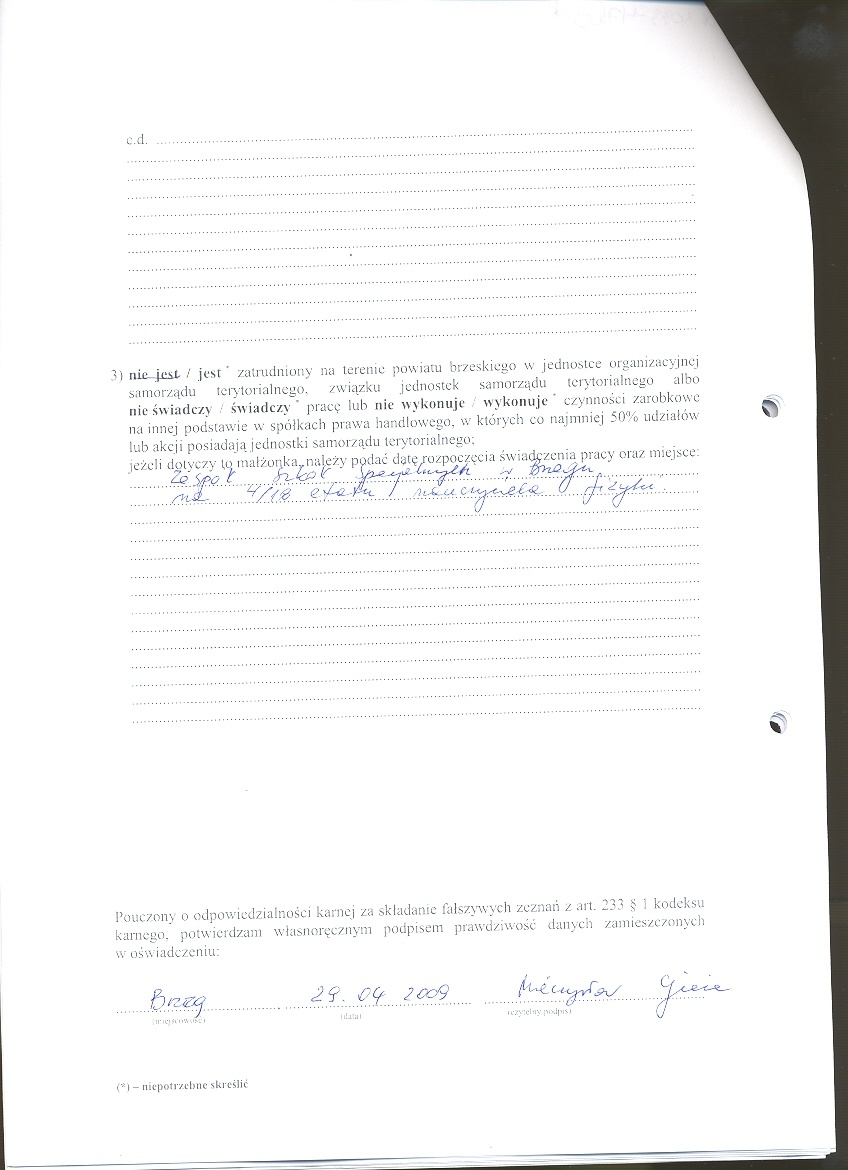 c.d.
3) nie jest / jest * zatrudniony na terenie powiatu brzeskiego w jednostce organizacyjnej
samorządu terytorialnego, związku jednostek samorządu terytorialnego albo
nie świadczy / świadczy * pracę lub nie wykonuje / wykonuje * czynności zarobkowe
na innej podstawie w spółkach prawa handlowego, w których co najmniej 50% udziałów
lub akcji posiadają jednostki samorządu terytorialnego;
jeżeli dotyczy to małżonka, należy podać datę rozpoczęcia świadczenia pracy oraz miejsce:
Zespół Szkół Specjalnych w Brzegu
na 4/18 etatu nauczyciela fizyki.
Pouczony o odpowiedzialności karnej za składanie fałszywych zeznań z art. 233 § 1 kodeksu
karnego, potwierdzam własnoręcznym podpisem prawdziwość danych zamieszczonych
w oświadczeniu:
Brzeg 29. 04 2009 Mieczysław
(miejscowość) (data) (czytelny podpis)
(*) – niepotrzebne skreślić